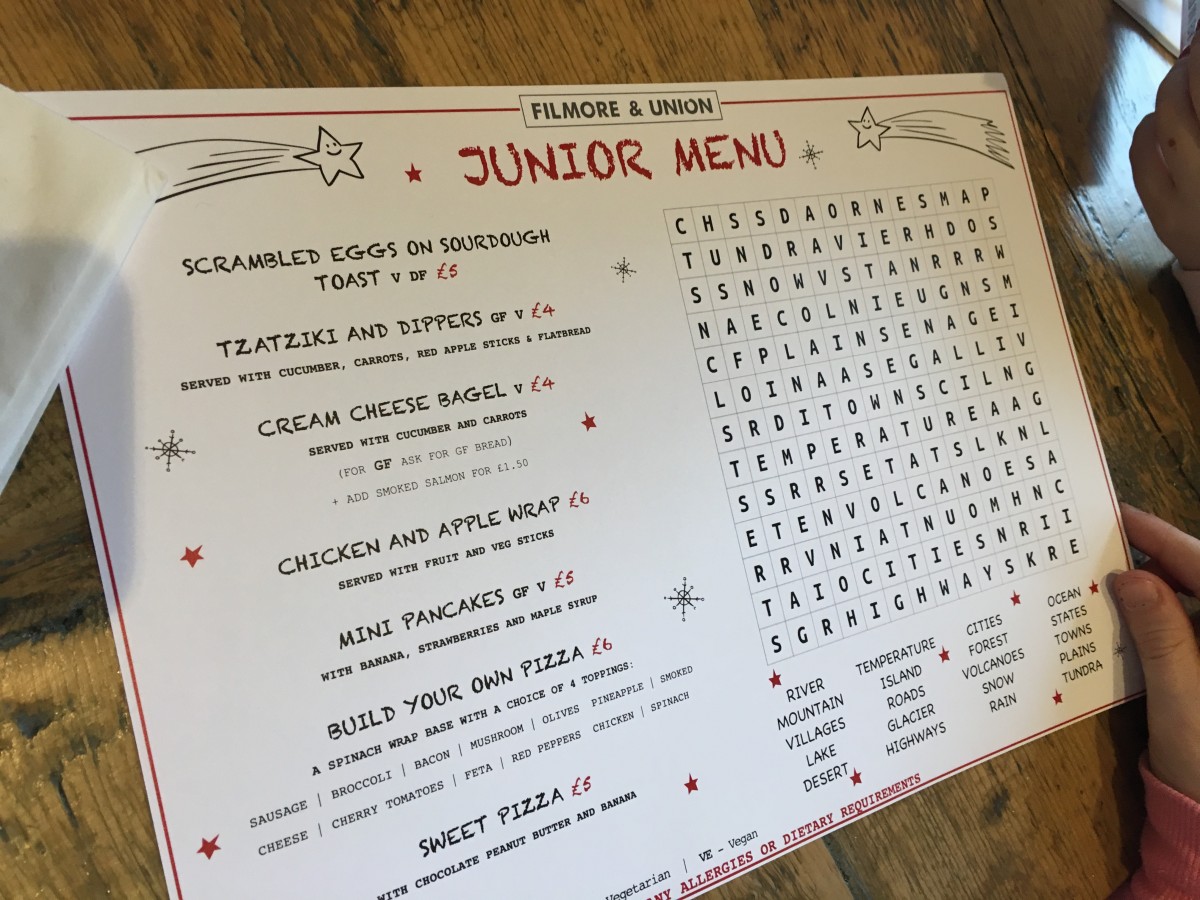 FILMORE & UNION
JUNIOR MENU
SCRAMBLED EGGS ON SOURDOUGH
TOAST V DF £5
TZATZIKI AND DIPPERS GF V £4
SERVED WITH CUCUMBER, CARROTS, RED APPLE STICKS & FLATBREAD
CREAM CHEESE BAGEL V £4
SERVED WITH CUCUMBER AND CARROTS
(FOR GF ASK FOR GF BREAD)
+ ADD SMOKED SALMON FOR £1.50
CHICKEN AND APPLE WRAP £6
SERVED WITH FRUIT AND VEG STICKS
MINI PANCAKES GF V £5
WITH BANANA, STRAWBERRIES AND MAPLE SYRUP
BUILD YOUR OWN PIZZA £6
A SPINACH WRAP BASE WITH A CHOICE OF 4 TOPPINGS:
SAUSAGE | BROCCOLI | BACON | MUSHROOM | OLIVES PINEAPPLE | SMOKED
CHEESE | CHERRY TOMATOES | FETA | RED PEPPERS CHICKEN | SPINACH
SWEET PIZZA £5
WITH CHOCOLATE PEANUT BUTTER AND BANANA
Vegetarian | VE - Vegan
ANY ALLERGIES OR DIETARY REQUIREMENTS
C H S S D A O R N E S M A P
T U N D R A V I E R H D O S
S S N O W V S T A N R R R W
N A E C O L N I E U G N S M
C F P L A I N S E N A G E I
L O I N A A S E G A L L I V
S R D I T O W N S C I L N G
T E M P E R A T U R E A A G
S S R R S E T A T S L K N L
E T E N V O L C A N O E S A
R R V N I A T N U O M H N C
T A I O C I T I E S N R I I
S G R H I G H W A Y S K R E
RIVER
MOUNTAIN
VILLAGES
LAKE
DESERT
TEMPERATURE
ISLAND
ROADS
GLACIER
HIGHWAYS
CITIES
FOREST
VOLCANOES
SNOW
RAIN
OCEAN
STATES
TOWNS
PLAINS
TUNDRA